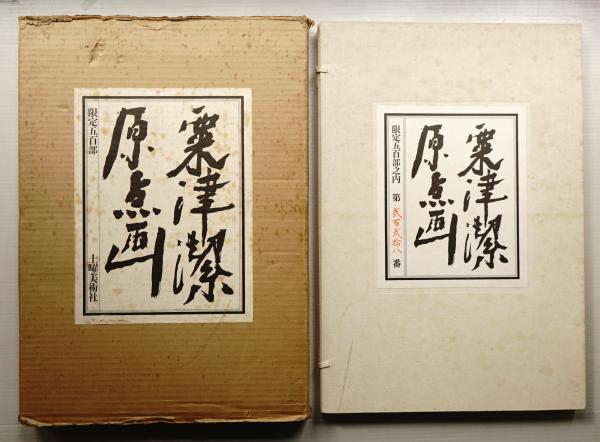 粟津潔
原点画
限定五百部
土曜美術社
粟津潔
原点画
限定五百部之内 第 弐百弐拾八 番